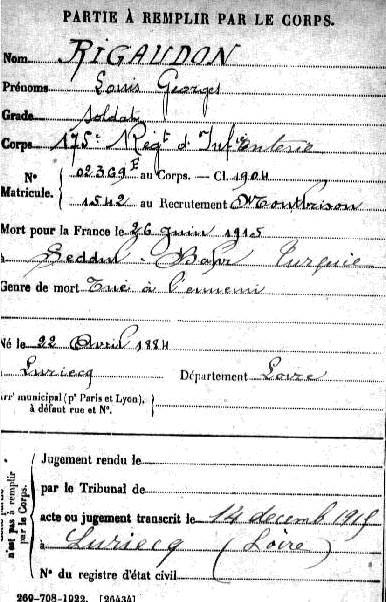 PARTIE À REMPLIR PAR LE CORPS.
Nom RIGAUDON
Prénoms Louis Georges
Grade Soldat
Corps 175e Régt d'Infanterie
N° Matricule. 02369E au Corps. — Cl. 1904
1542 au Recrutement Montbrison
Mort pour la France le 26 juin 1915
à Seddul-Bahr Turquie
Genre de mort Tué à l'ennemi
Né le 22 Avril 1884
Luriecq Département Loire
Arrt municipal (pr Paris et Lyon), à défaut rue et N°.
Jugement rendu le
par le Tribunal de
acte ou jugement transcrit le 14 décemb 1915
à Luriecq (Loire)
N° du registre d'état civil
n'est pas à remplir par le Corps.
269-708-1922. [26434]